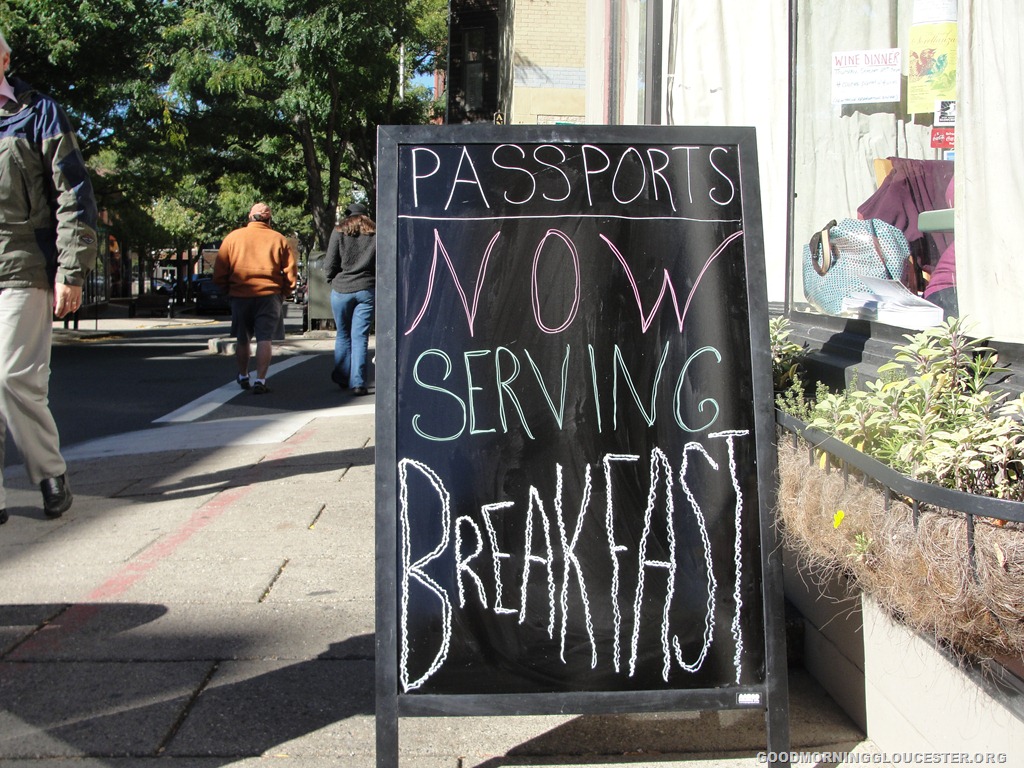 PASSPORTS
NOW
SERVING
BREAKFAST
WINE DINNER
GOODMORNINGGLOUCESTER.ORG